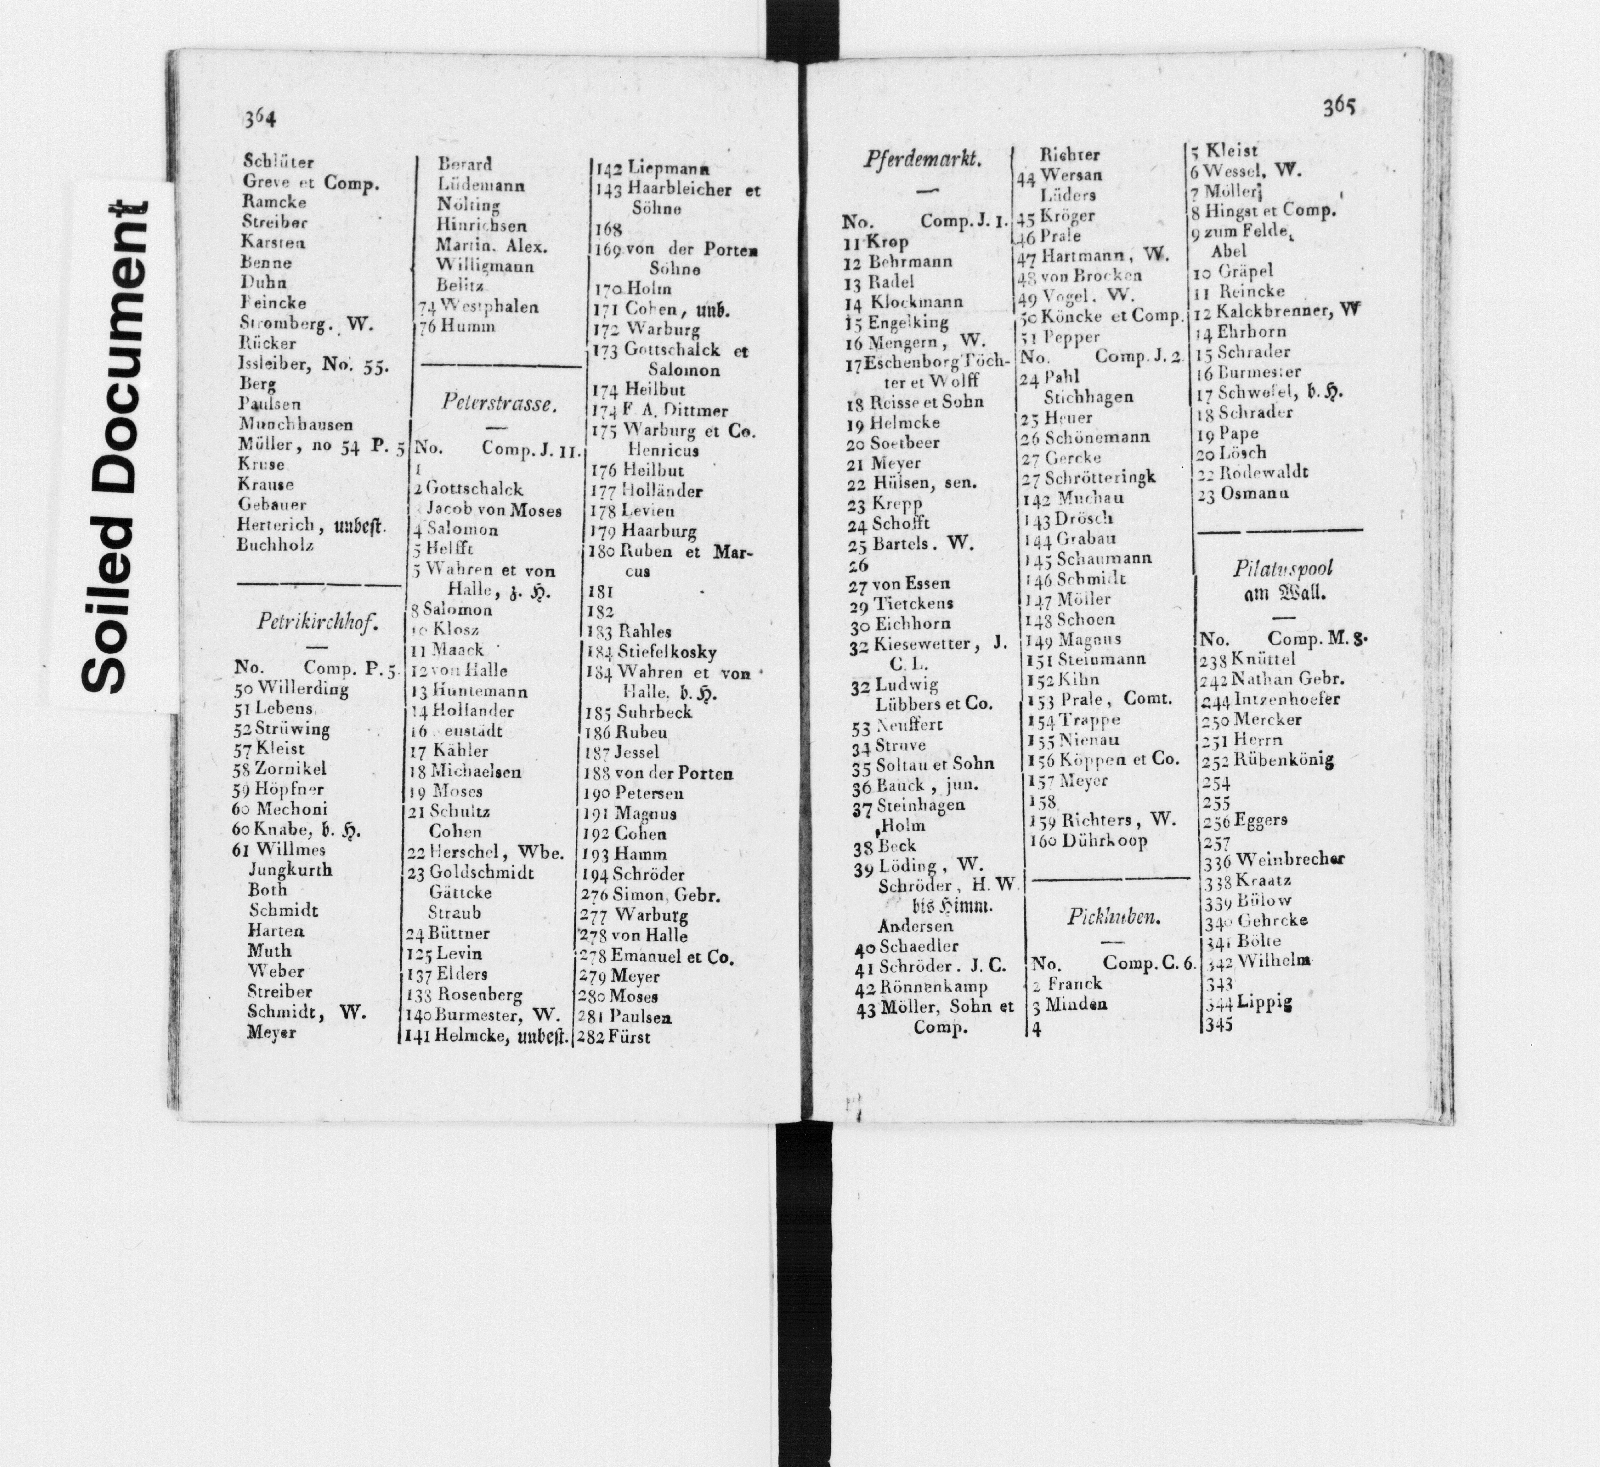 Soiled Document
364
Schlüter
Greve et Comp.
Ramcke
Streiber
Karsten
Benne
Duhn
Reincke
Stromberg. W.
Rücker
Issleiber, No. 55.
Berg
Paulsen
Münchhausen
Müller, no 54 P. 5
Kruse
Krause
Gebauer
Herterich, unbest.
Buchholz
Petrikirchhof.
No. Comp. P. 5.
50 Willerding
51 Lebens
52 Strüwing
57 Kleist
58 Zornikel
59 Höpfner
60 Mechoni
60 Knabe, b. H.
61 Willmes
Jungkurth
Both
Schmidt
Harten
Muth
Weber
Streiber
Schmidt, W.
Meyer
Berard
Lüdemann
Nölting
Hinrichsen
Martin. Alex.
Willigmann
Belitz
74 Westphalen
76 Humm
Peterstrasse.
No. Comp. J. II.
1
2 Gottschalck
Jacob von Moses
4 Salomon
5 Helfft
5 Wahren et von
Halle, z. H.
8 Salomon
10 Klosz
11 Maack
12 von Halle
13 Huntemann
14 Hollander
16 eustädt
17 Kähler
18 Michaelsen
19 Moses
21 Schultz
Cohen
22 Herschel, Wbe.
23 Goldschmidt
Gättcke
Straub
24 Büttner
125 Levin
137 Elders
138 Rosenberg
140 Burmester, W.
141 Helmcke, unbest.
142 Liepmann
143 Haarbleicher et
Söhne
168
169 von der Porten
Söhne
170 Holm
171 Cohen, unb.
172 Warburg
173 Gottschalck et
Salomon
174 Heilbut
174 F. A. Dittmer
175 Warburg et Co.
Henricus
176 Heilbut
177 Holländer
178 Levien
179 Haarburg
180 Ruben et Mar-
cus
181
182
183 Rahles
184 Stiefelkosky
184 Wahren et von
Halle, b. H.
185 Suhrbeck
186 Ruben
187 Jessel
188 von der Porten
190 Petersen
191 Magnus
192 Cohen
193 Hamm
194 Schröder
276 Simon, Gebr.
277 Warburg
278 von Halle
278 Emanuel et Co.
279 Meyer
280 Moses
281 Paulsen
282 Fürst
365
Pferdemarkt.
No. Comp. J. 1.
11 Krop
12 Behrmann
13 Radel
14 Klockmann
15 Engelking
16 Mengern, W.
17 Eschenborg Töch-
ter et Wolff
18 Reisse et Sohn
19 Helmcke
20 Soetbeer
21 Meyer
22 Hülsen, sen.
23 Krepp
24 Schofft
25 Bartels. W.
26
27 von Essen
29 Tietckens
30 Eichhorn
32 Kiesewetter, J.
C. L.
32 Ludwig
Lübbers et Co.
53 Neuffert
34 Struve
35 Soltau et Sohn
36 Bauck, jun.
37 Steinhagen
Holm
38 Beck
39 Löding, W.
Schröder, H. W.
bis Himm.
Andersen
40 Schaedler
41 Schröder. J. C.
42 Rönnenkamp
43 Möller, Sohn et
Comp.
Richter
44 Wersan
Lüders
45 Kröger
46 Prale
47 Hartmann, W.
48 von Brocken
49 Vogel. W.
50 Köncke et Comp.
51 Pepper
No. Comp. J. 2.
24 Pahl
Stichhagen
25 Heuer
26 Schönemann
27 Gercke
27 Schrötteringk
142 Muchau
143 Drösch
144 Grabau
145 Schaumann
146 Schmidt
147 Möller
148 Schoen
149 Magnus
151 Steinmann
152 Kihn
153 Prale, Comt.
154 Trappe
155 Nienau
156 Köppen et Co.
157 Meyer
158
159 Richters, W.
160 Dührkoop
Pickhuben.
No. Comp. C. 6.
2 Franck
3 Minden
4
5 Kleist
6 Wessel, W.
7 Möller
8 Hingst et Comp.
9 zum Felde,
Abel
10 Gräpel
11 Reincke
12 Kalckbrenner, W
14 Ehrhorn
15 Schrader
16 Burmester
17 Schwefel, b. H.
18 Schrader
19 Pape
20 Lösch
22 Rodewaldt
23 Osmann
Pilatuspool
am Wall.
No. Comp. M. 8.
238 Knüttel
242 Nathan Gebr.
244 Intzenhoefer
250 Mercker
251 Herrn
252 Rübenkönig
254
255
256 Eggers
257
336 Weinbrecher
338 Kraatz
339 Bülow
340 Gehrcke
341 Bölte
342 Wilhelm
343
344 Lippig
345